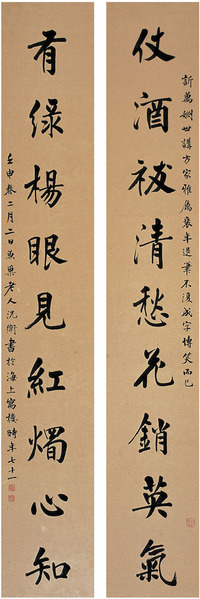 姻世講方家雅屬衰年退筆不復成字博笑而已
仗酒祓清愁花銷英氣
有綠楊眼見紅燭心知
壬申春二月二日兼巢老人沈衛書於海上寓樓時年七十一